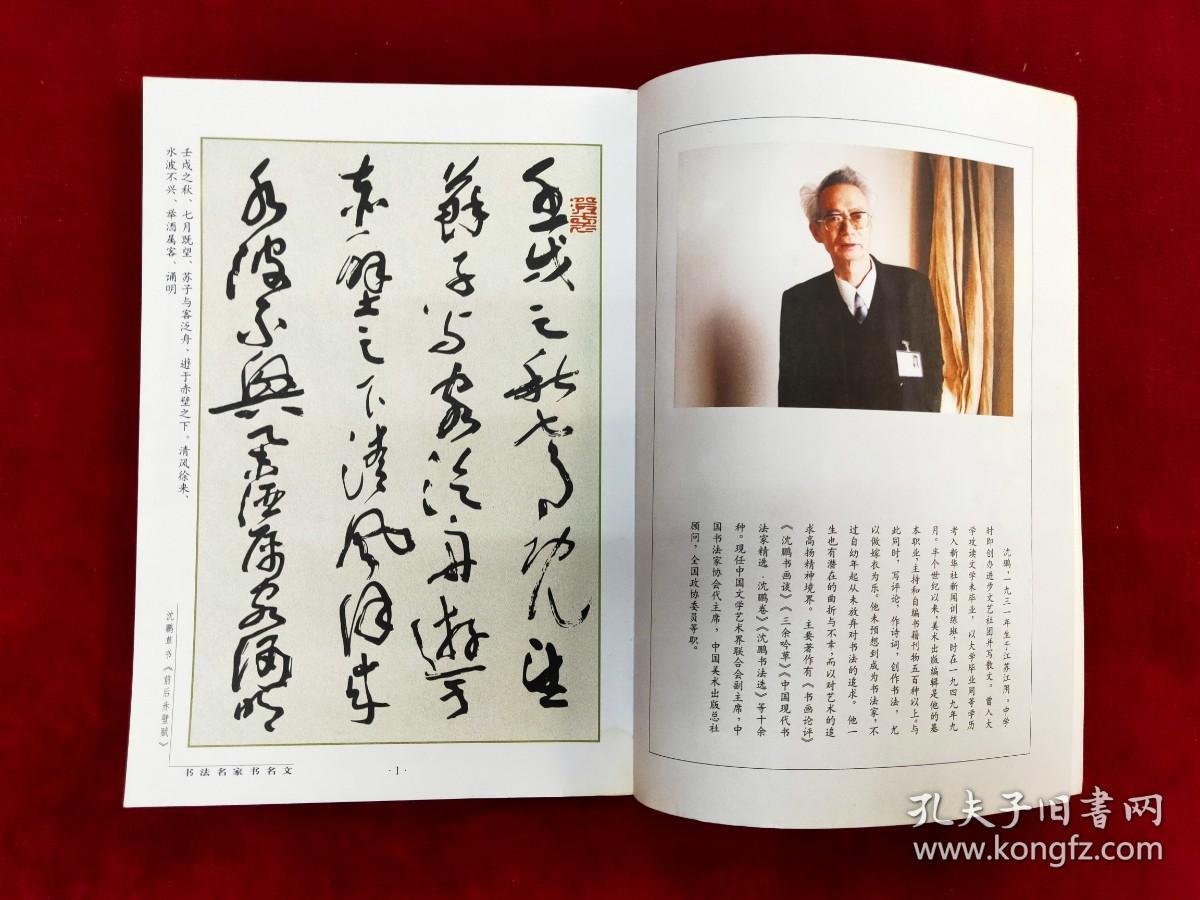 壬戌之秋七月既望
蘇子与客泛舟遊于
赤壁之下清风徐来
水波不兴举酒属客诵明
壬戌之秋、七月既望、苏子与客泛舟、遊于赤壁之下。清风徐来、
水波不兴、举酒属客、诵明
沈鹏草书《前后赤壁赋》
书法名家书名文
·1·
沈鹏，一九三一年生于江苏江阴，中学
时即创办进步文艺社团并写散文。曾入大
学攻读文学未毕业，以大学毕业同等学历
考入新华社新闻训练班，时在一九四九年九
月。半个世纪以来，美术出版编辑是他的基
本职业，主持和自编书籍刊物五百种以上。与
此同时，写评论，作诗词，创作书法，尤
以做嫁衣为乐。他未预想到成为书法家，不
过自幼年起从未放弃对书法的追求。他一
生也有潜在的曲折与不幸，而以对艺术的追
求高扬精神境界。主要著作有《书画论评》
《沈鹏书画谈》《三余吟草》《中国现代书
法家精选·沈鹏卷》《沈鹏书法选》等十余
种。现任中国文学艺术界联合会副主席，中
国书法家协会代主席，中国美术出版总社
顾问，全国政协委员等职。
孔夫子旧書网
www.kongfz.com